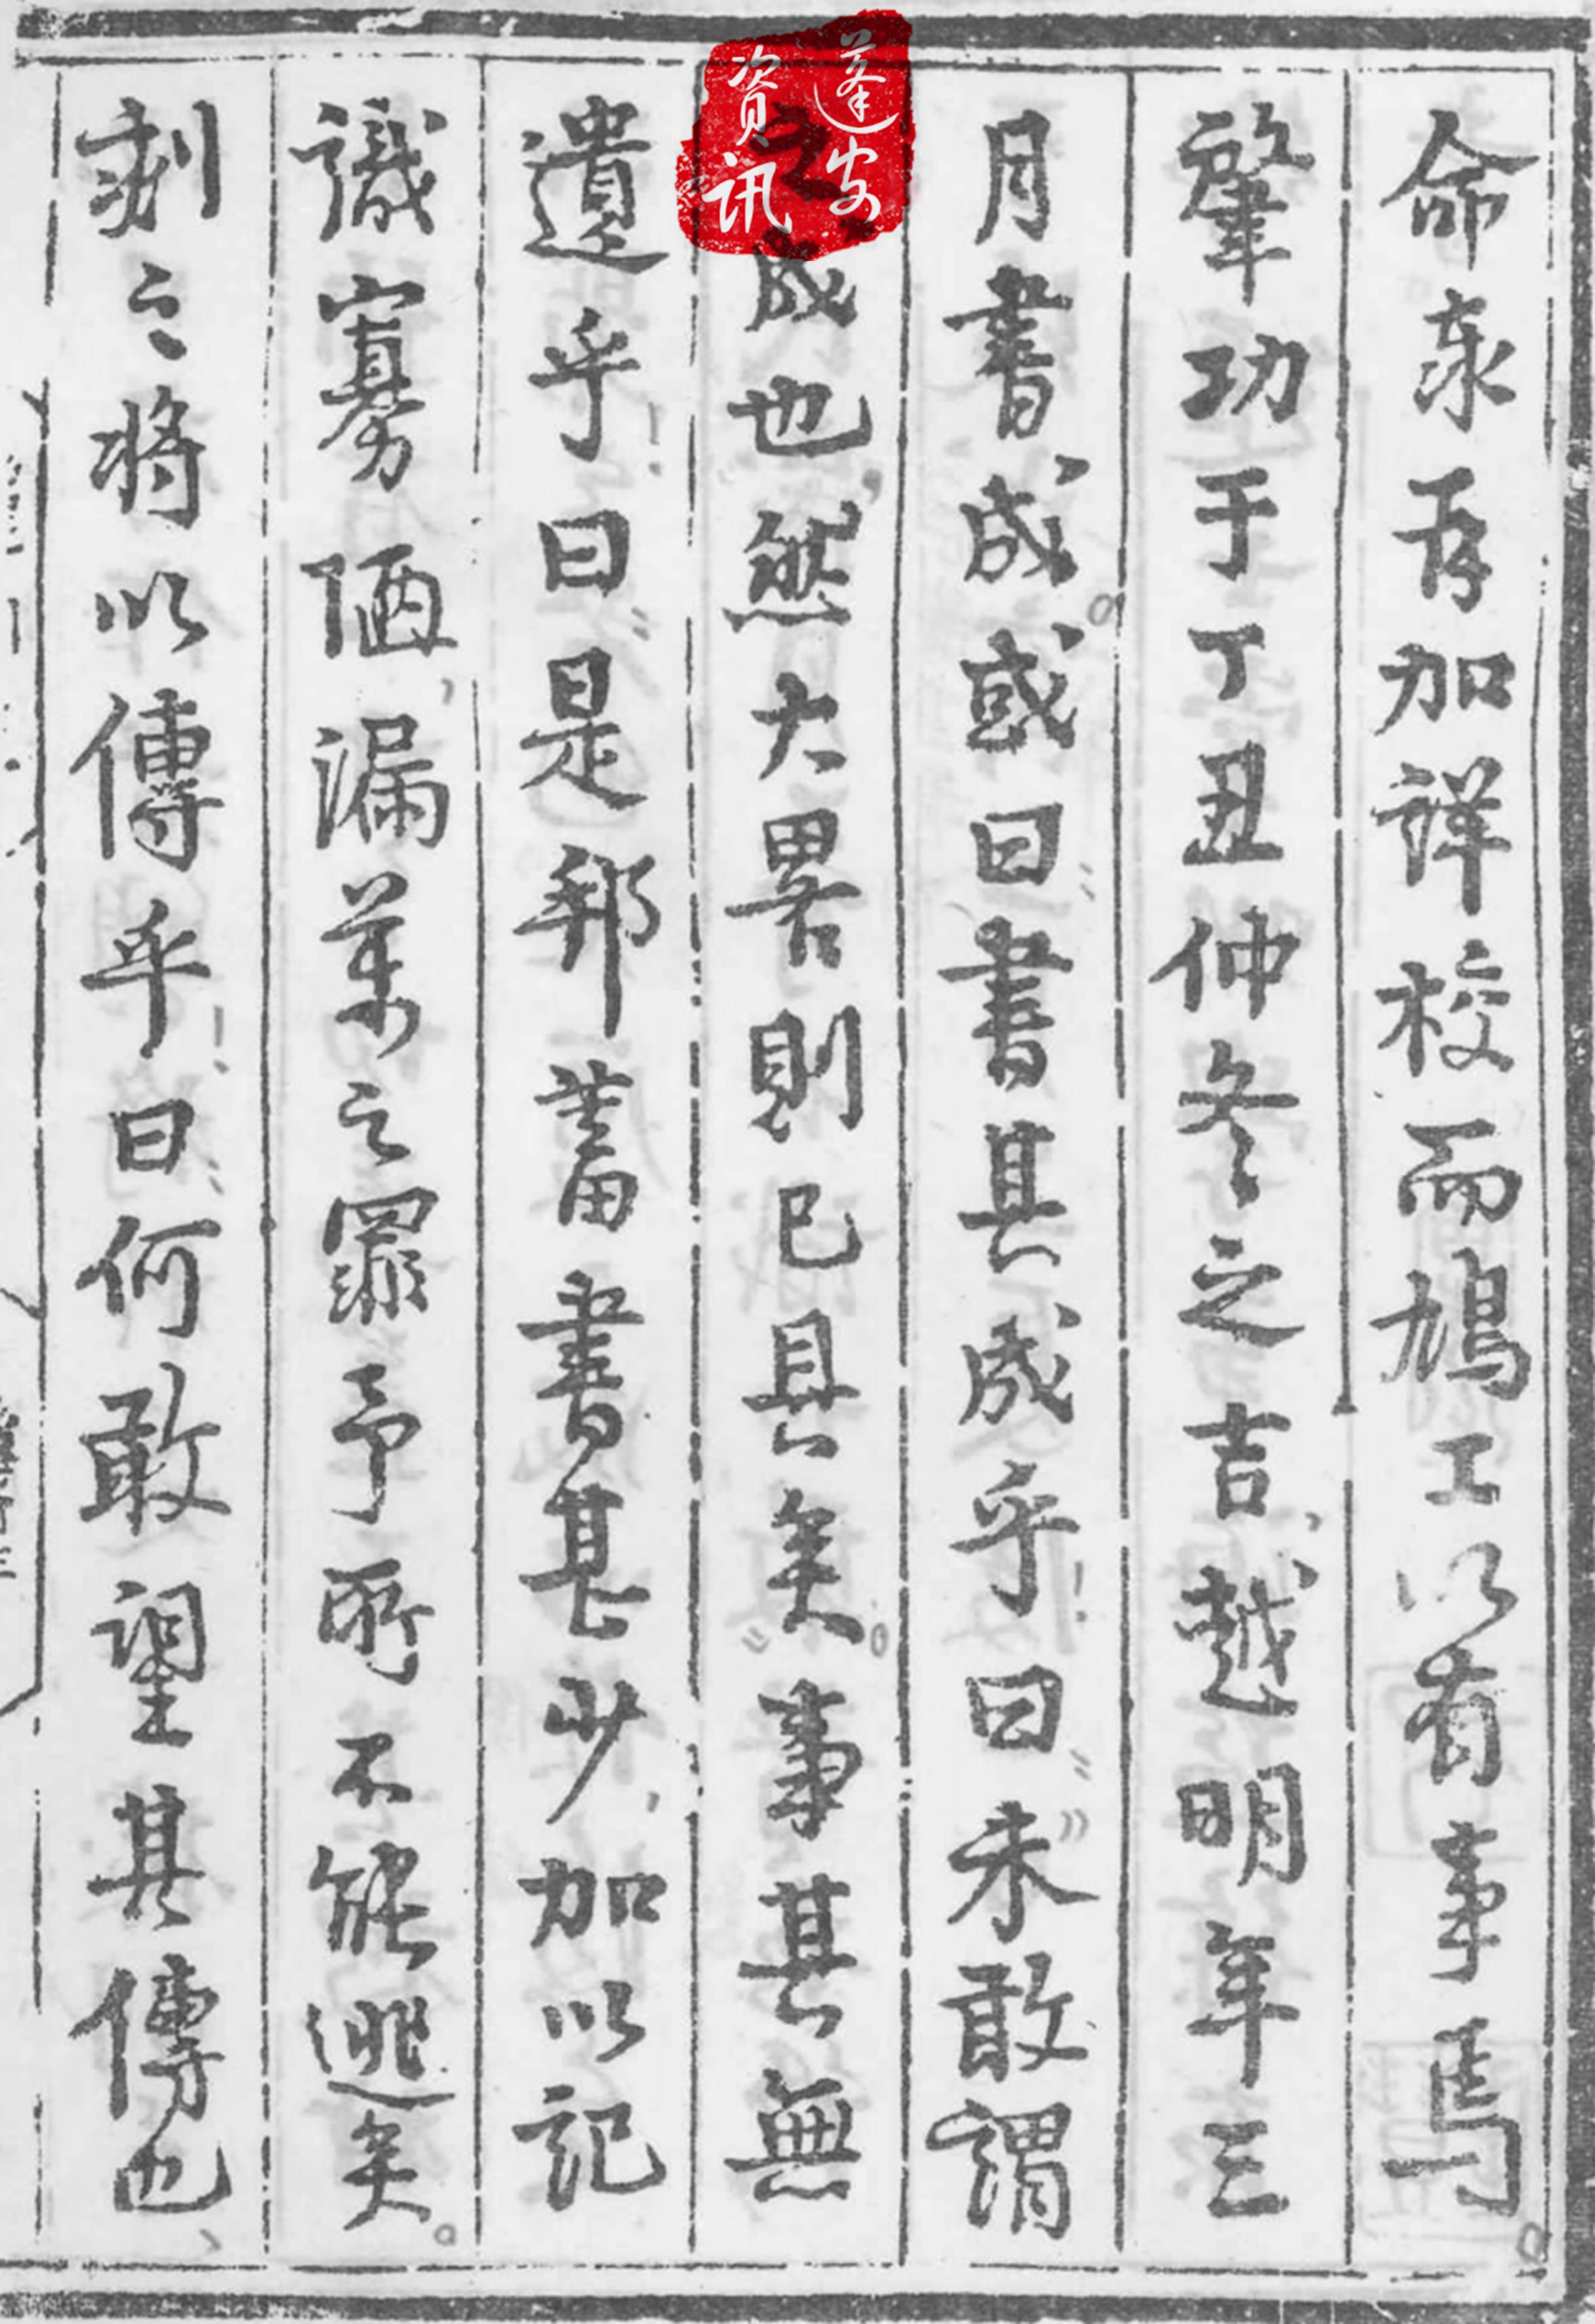 命衮再加詳校而鳩工以有事焉
肇功于丁丑仲冬之吉越明年三
月書成或曰書其成乎曰未敢謂
之成也然大畧則已具矣事其無
遺乎曰是邦蓄書甚少加以記
識寡陋漏萬之罪予所不能逃矣
刻之將以傳乎曰何敢望其傳也
蓬安
资讯